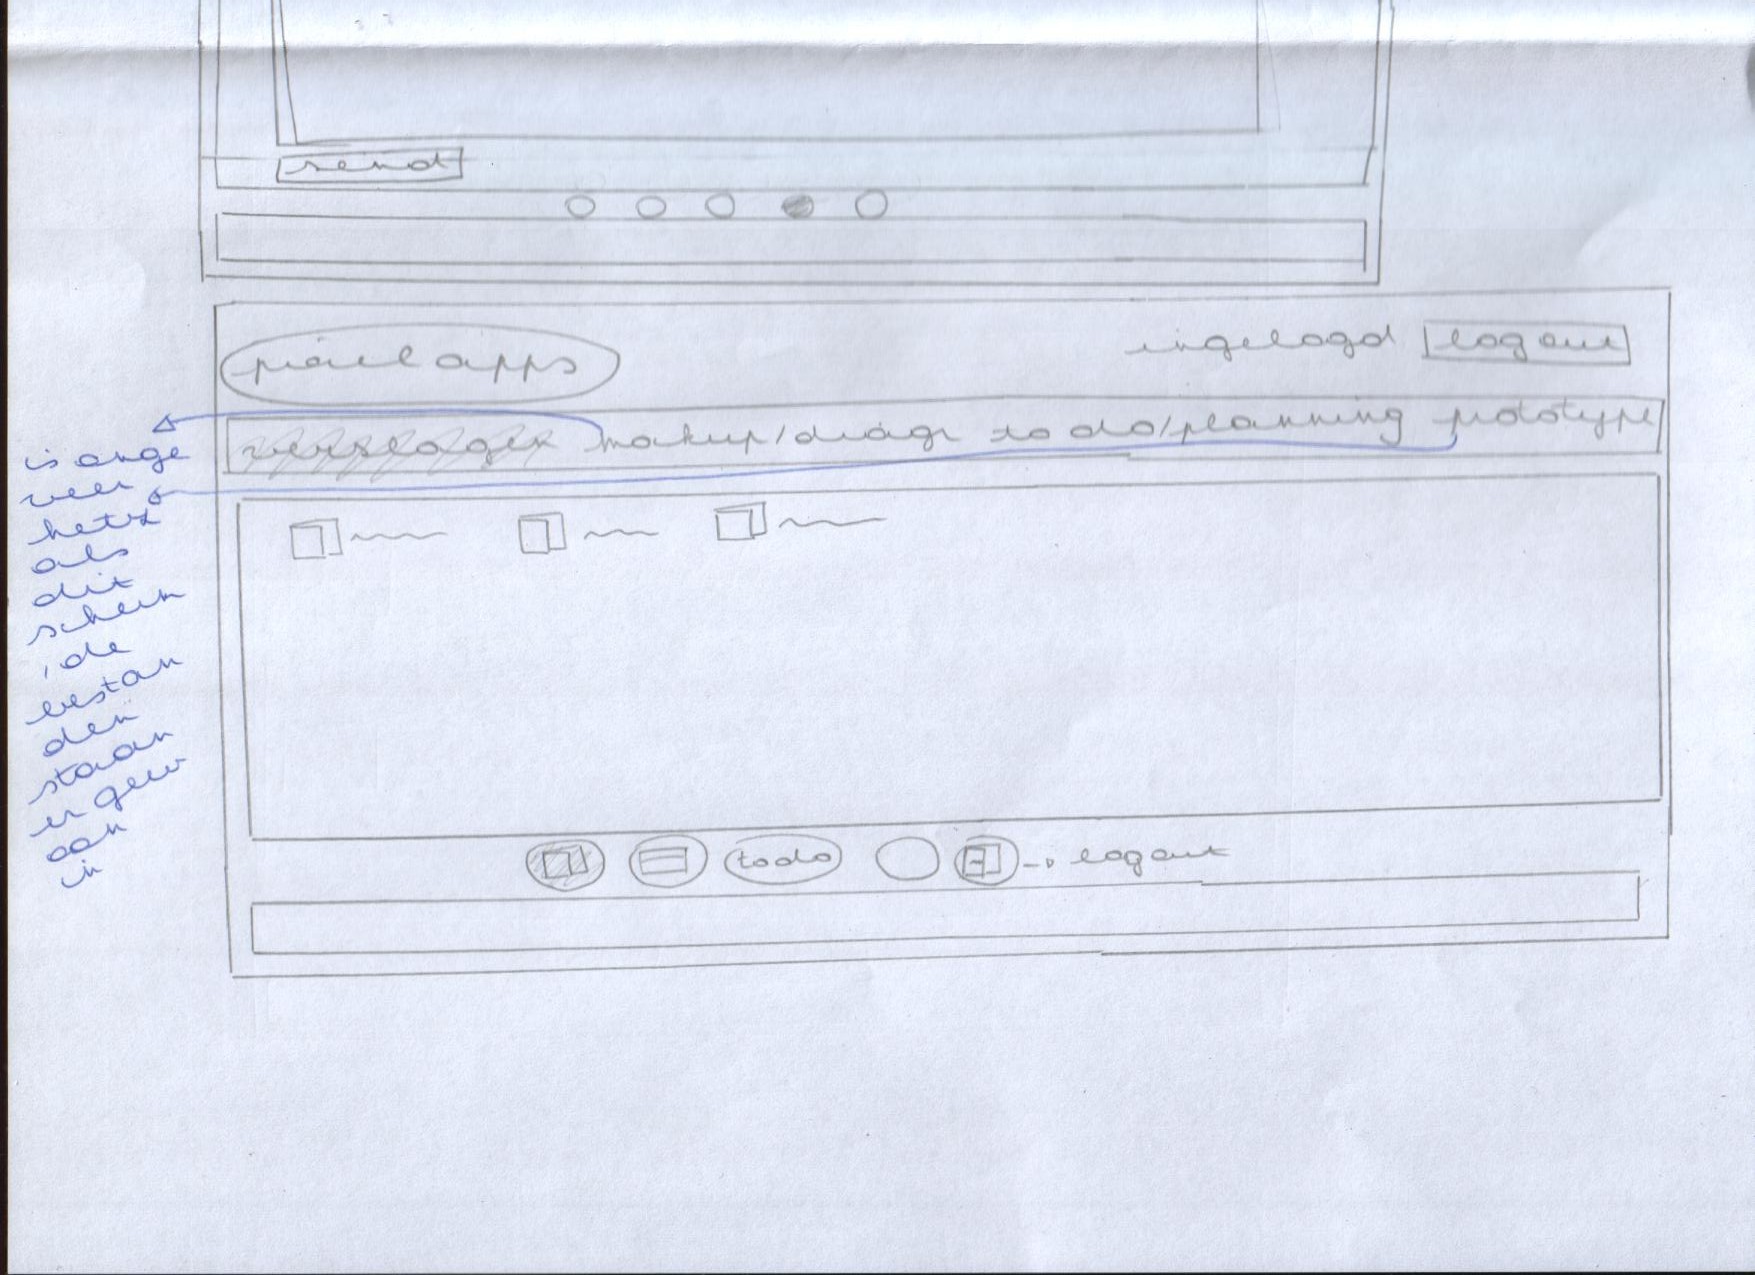 send
pixel apps
ingelogd logout
verslagen mokup/diagr to do/planning prototype
is onge
veer
hetz
als
dit
scherm
, de
bestan
den
staan
er gew
oon
in
todo
logout